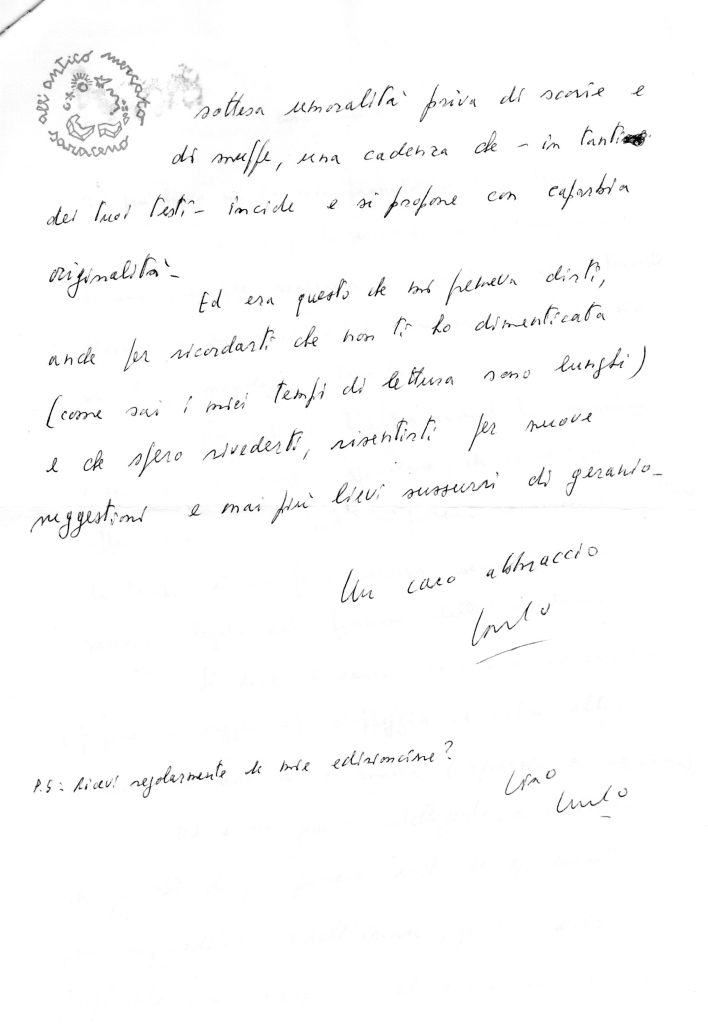 all'antico mercato saraceno
sottesa umoralità priva di scorie e
di muffe, una cadenza che - in tanti
dei tuoi testi - incide e si propone con caparbia
originalità -
Ed era questo che mi premeva dirti,
anche per ricordarti che non ti ho dimenticata
(come sai i miei tempi di lettura sono lunghi)
e che spero rivederti, risentirti per nuove
suggestioni e mai più lievi sussurri di geranio -
Un caro abbraccio
P.S: Ricevi regolarmente le mie edizioncine?
Ciao